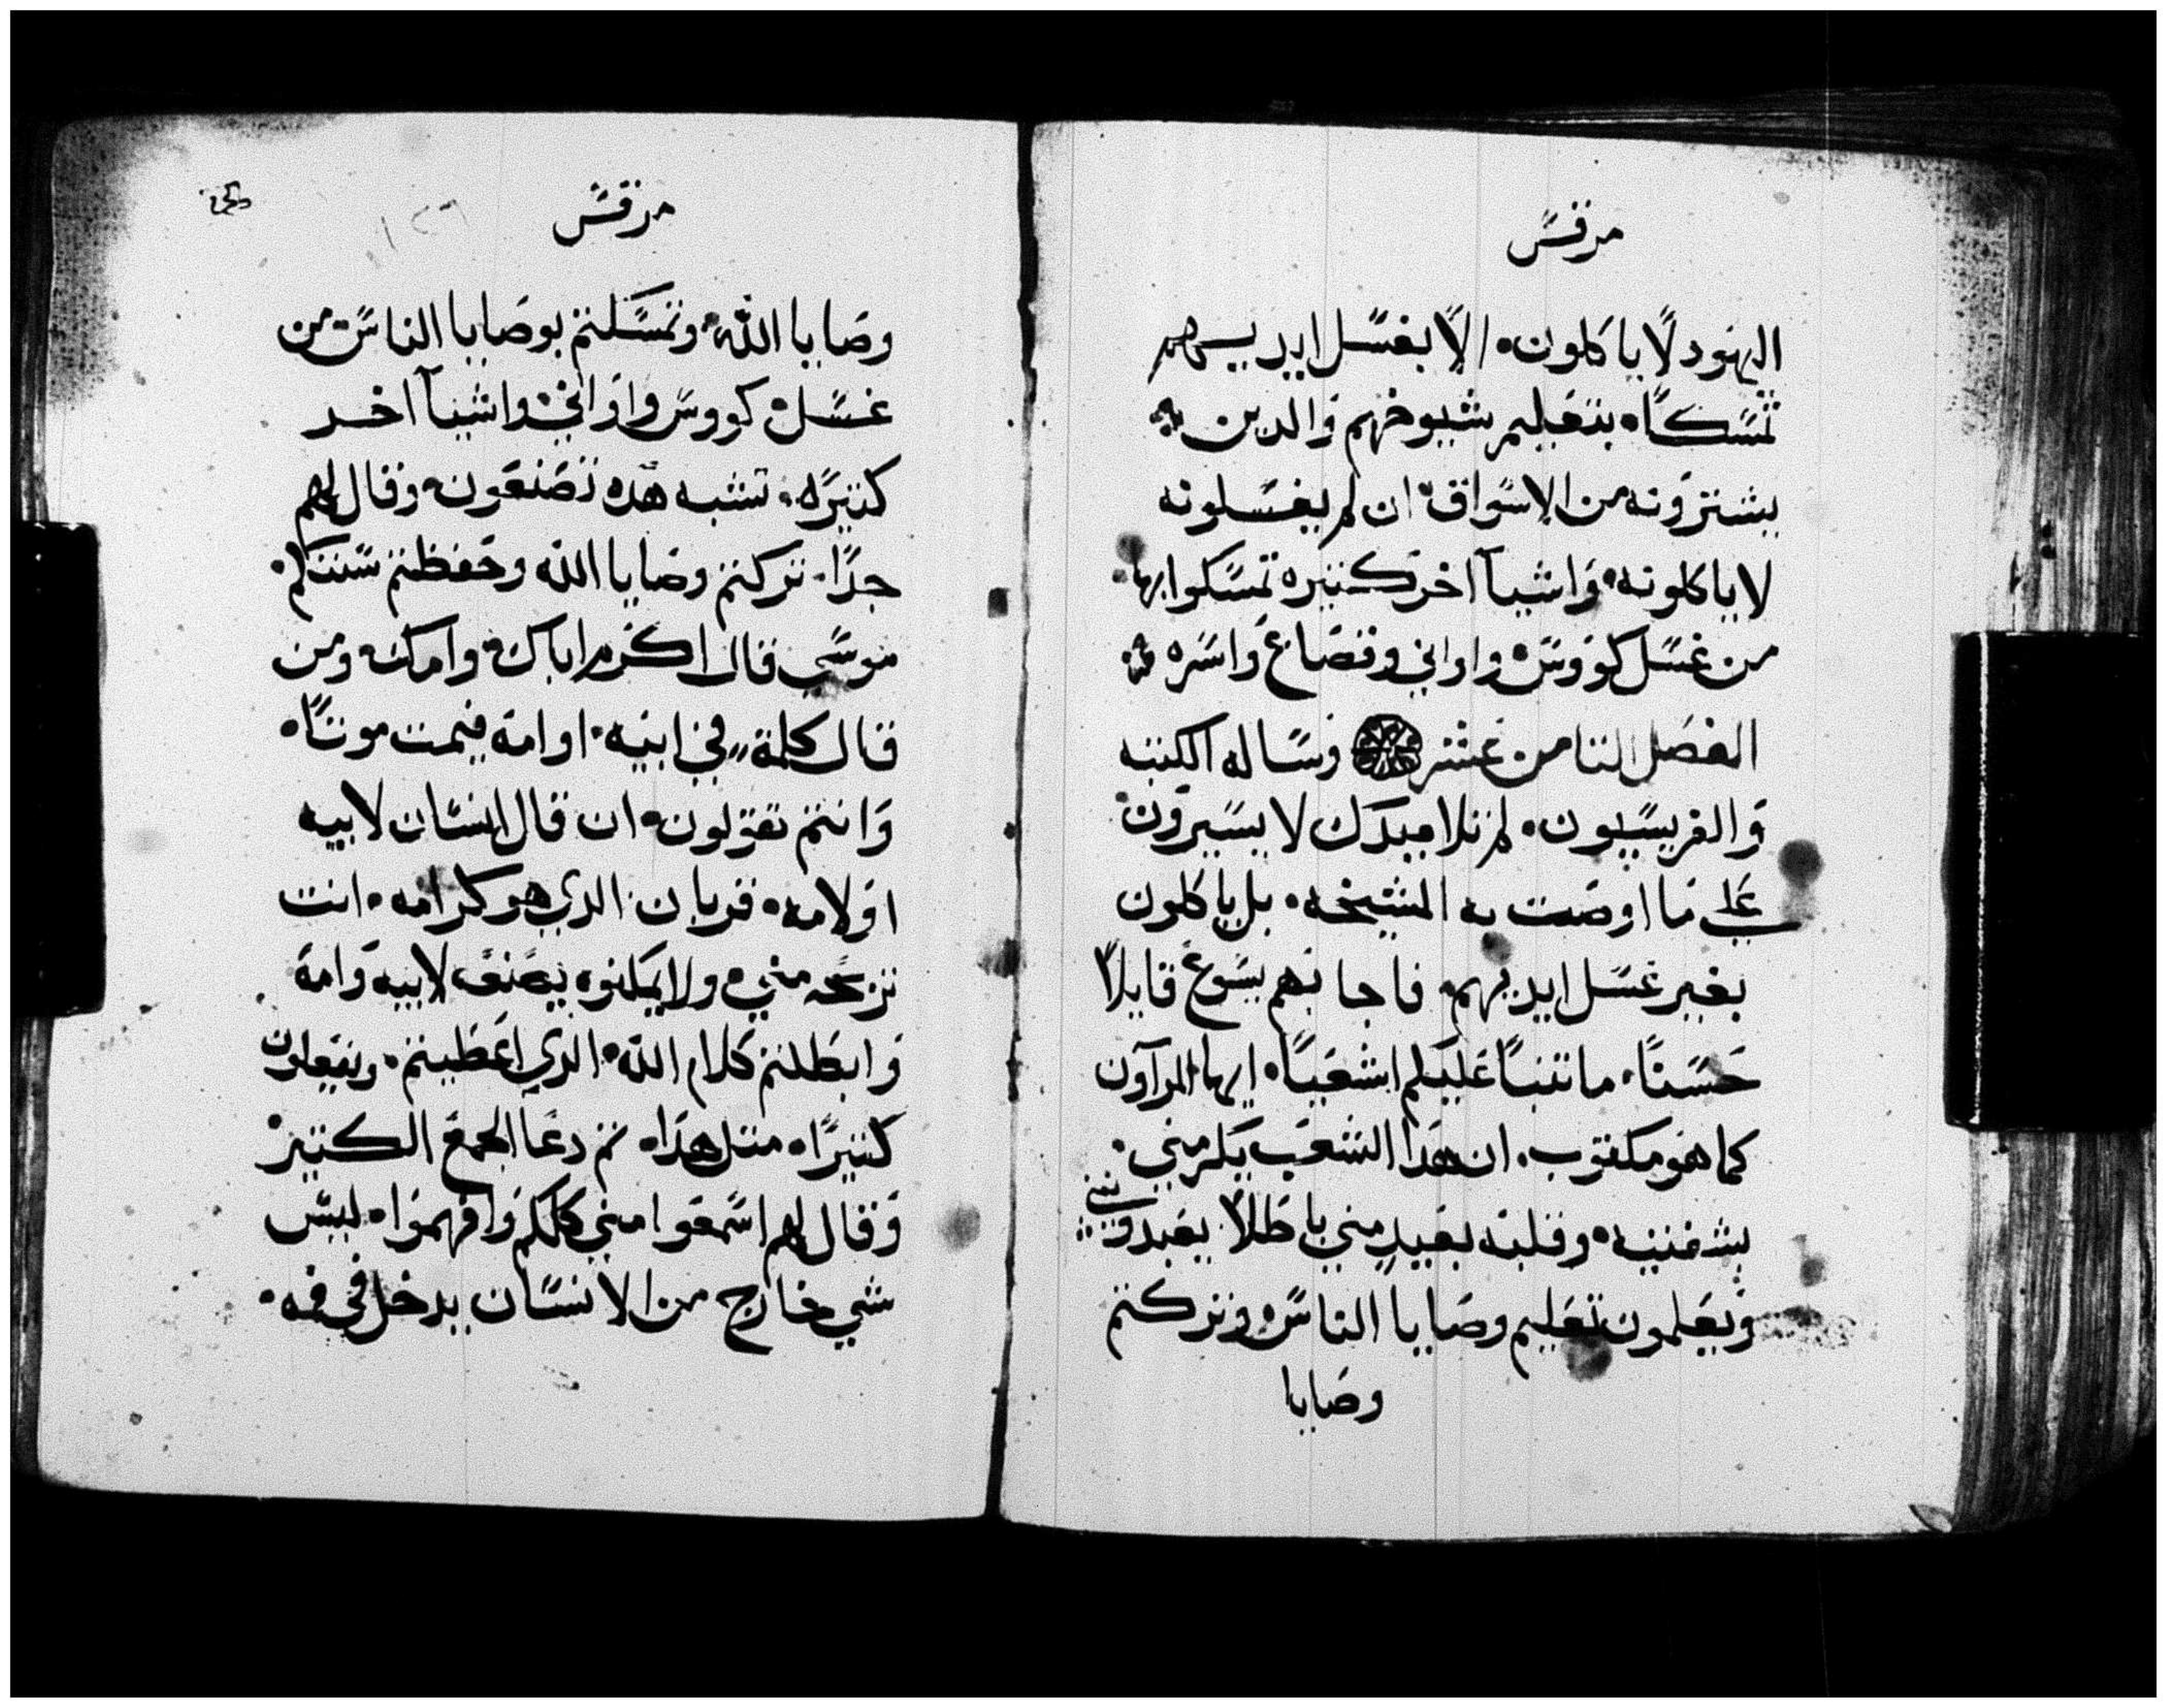 مرقس
اليهود لا ياكلون الا بغسل ايديهم
تمسكا بتعليم شيوخهم والدين
يشترونه من الاسواق ان لم يغسلونه
لا ياكلونه واشيا اخر كثيره تمسكوا بها
من غسل كووس واواني وقصاع واسره
الفصل الثامن عشر وساله الكتبه
والفريسيون لم تلاميدك لا يسيرون
على ما اوصت به المشيخه بل ياكلون
بغير غسل ايديهم فاجابهم يسوع قايلا
حسنا ما تنبا عليكم اشعيا ايها المرآون
كما هو مكتوب ان هدا الشعب يكرمني
بشفتيه وقلبه بعيد مني باطلا يعبدونني
ويعلمون تعليم وصايا الناس وتركتم
وصايا
مرقس
١٢٦
وصايا الله وتمسكتم بوصايا الناس من
غسل كووس واواني واشيآ اخر
كثيره تشبه هده تصنعون وقال لهم
جدا تركتم وصايا الله وحفظتم سنتكم
موسى قال اكرم اباك وامك ومن
قال كلمة في ابيه او امه فيمت موتا
وانتم تقولون ان قال انسان لابيه
او لامه قربان الدي هو كرامه انت
تزعجه مني ولا يمكنوه يصنع لابيه وامه
وابطلتم كلام الله الدي اعطيتم وتفعلون
كثيرا مثل هدا ثم دعا الجمع الكثير
وقال لهم اسمعوا مني كلكم وافهموا ليس
شي خارج من الانسان يدخل في فمه